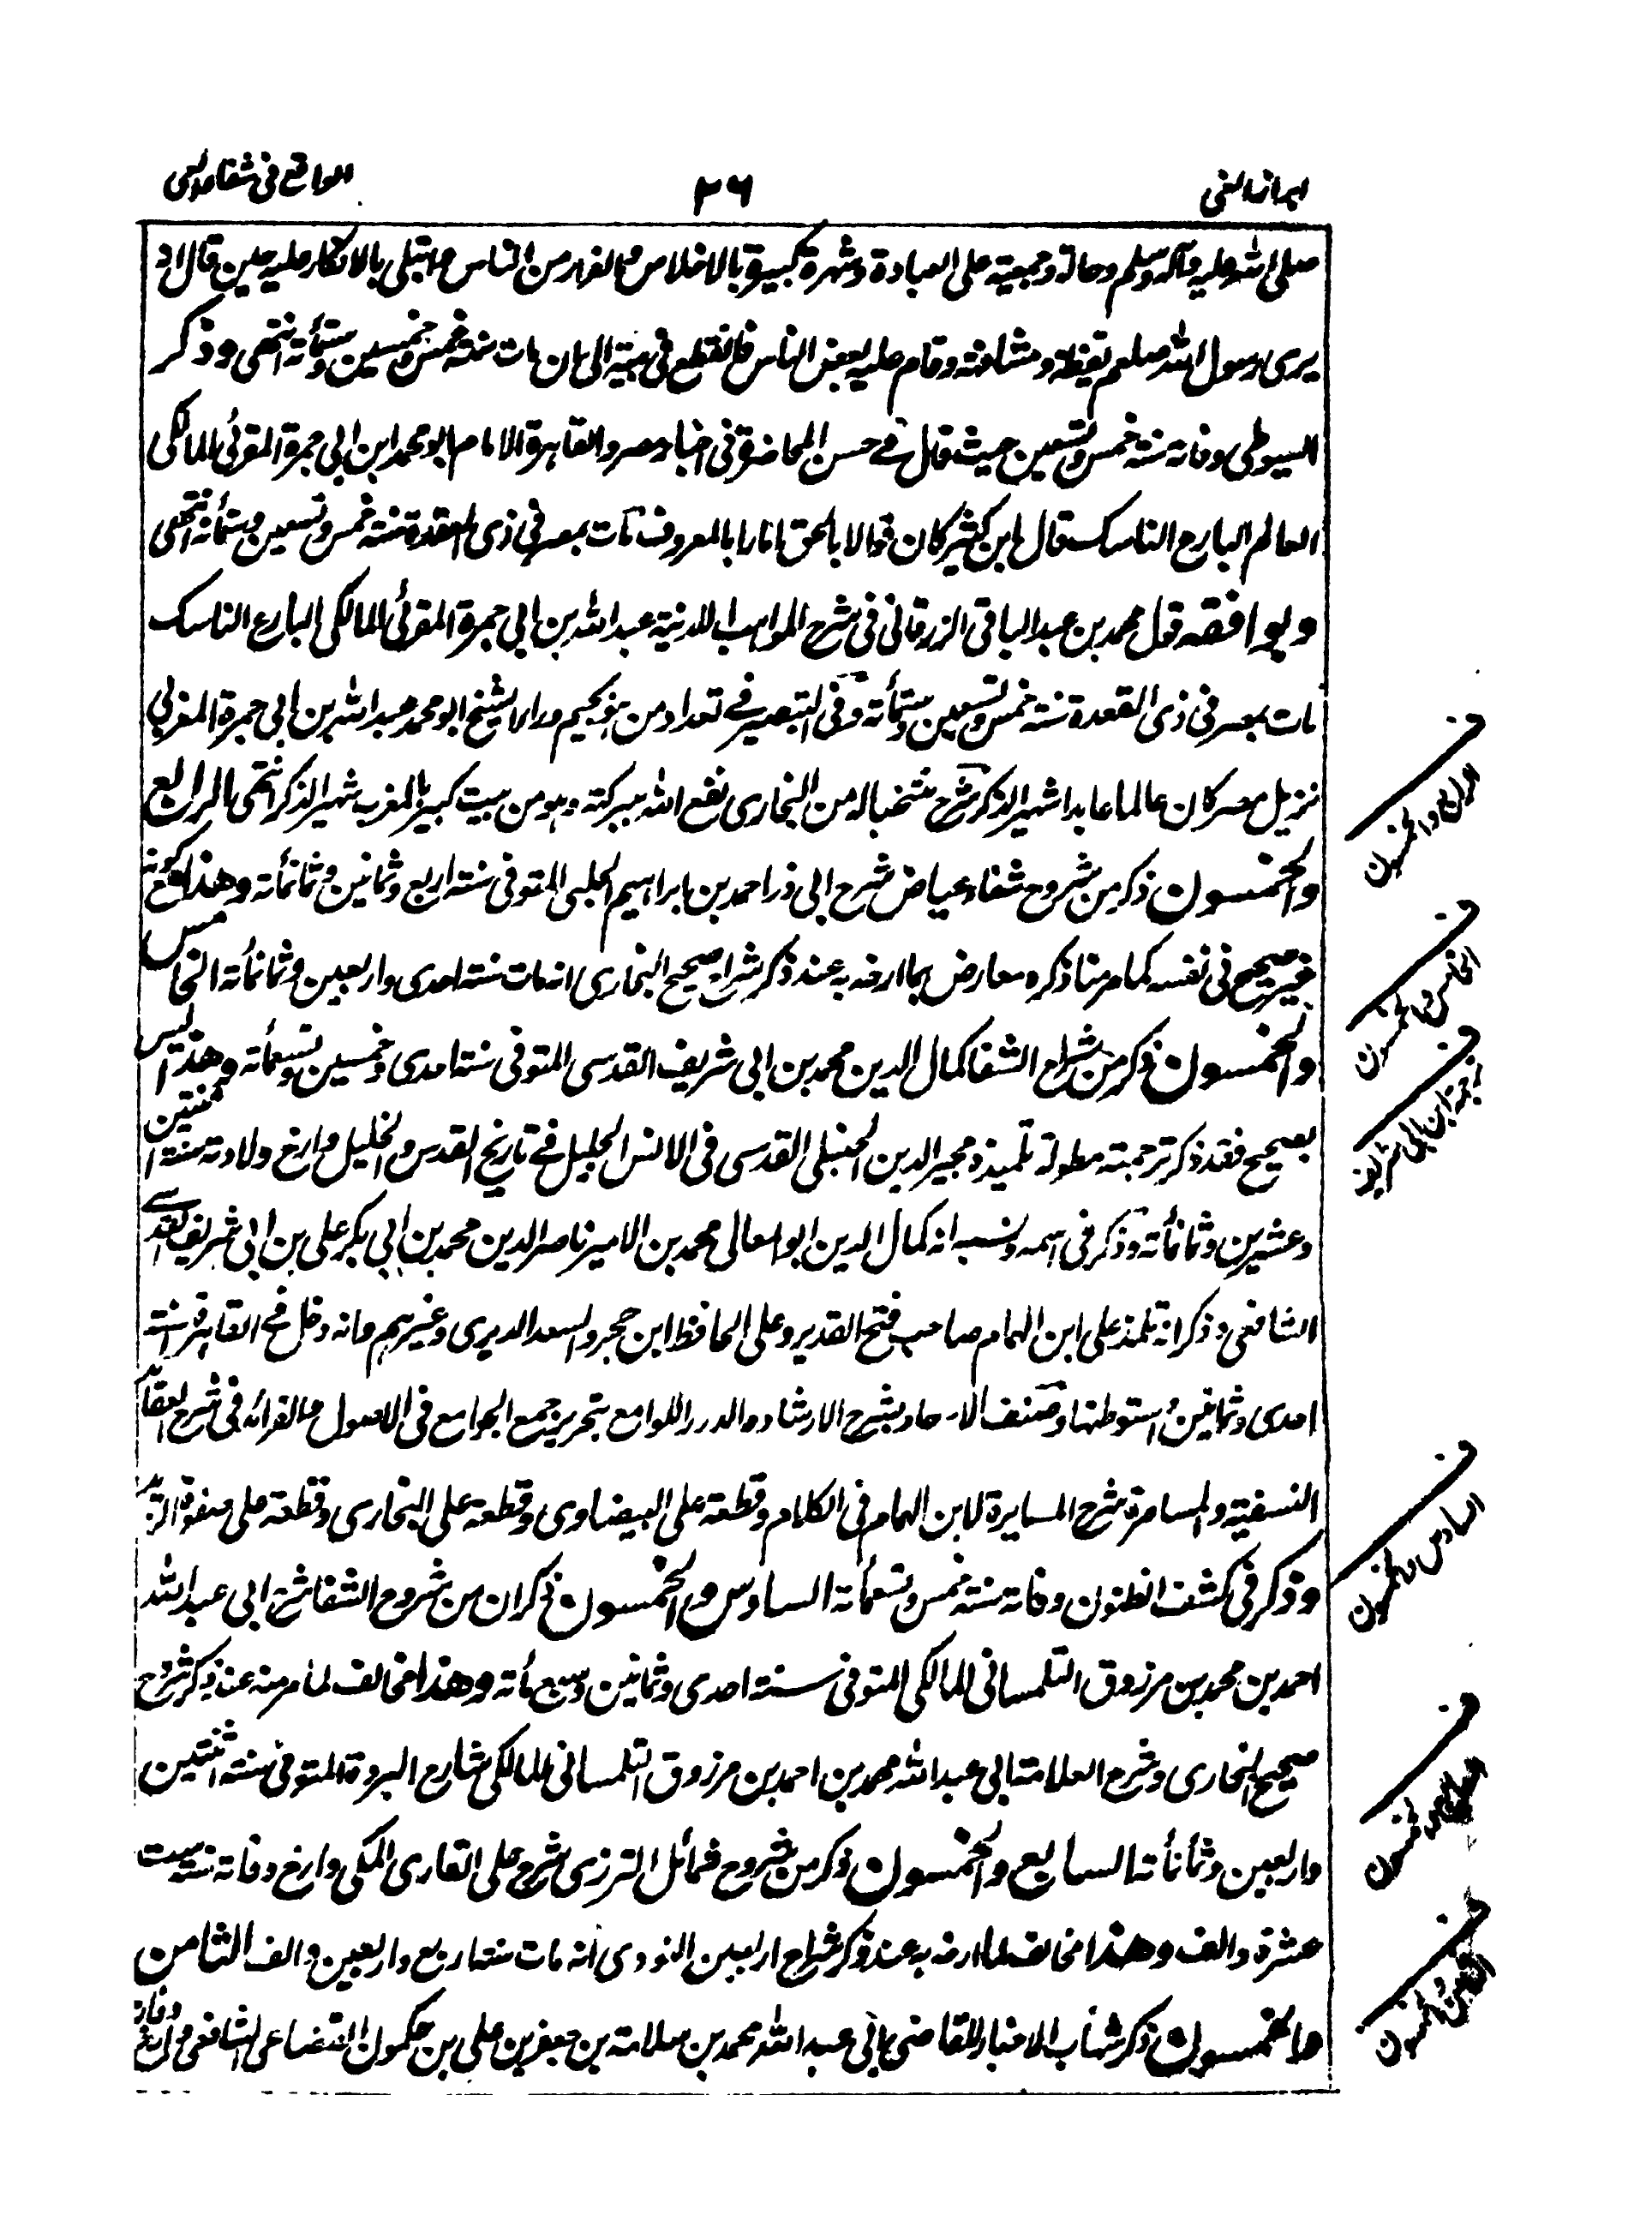 ابراز الغي
٢٦
الواقع في شفاء العي
صلى الله عليه وآله وسلم وحالة وجمعية على العبادة وشهرة كبيرة بالاخلاص من الناس وابتلى بالانكار عليه حين قال انه
يرى رسول الله صلعم يقظة ومشافهة وقام عليه بعض الناس فانقطع في بيته الى ان مات سنة خمس وخمسين وستمأته انتهى وذكر
السيوطي وفاته سنة خمس وتسعين حيث قال في حسن المحاضرة في اخبار مصر والقاهرة الامام ابو محمد ابن ابي جمرة المقرئ المالكي
العالم البارع الناسك قال ابن كثير كان قوالا بالحق امارا بالمعروف مات بمصر في ذي القعدة سنة خمس وتسعين وستمأته انتهى
ويوافقه قول محمد بن عبد الباقي الزرقاني في شرح المواهب اللدنية عبد الله بن ابي جمرة المقرئ المالكي البارع الناسك
مات بمصر في ذي القعدة سنة خمس وتسعين وستمأته وفي التبصير في تعداد من هو بجيم وراء الشيخ ابو محمد عبد الله بن ابي جمرة المغربي
نزيل مصر كان عالما عابدا شهير الذكر شرح منتخبا له من البخاري نفع الله ببركته وهو من بيت كبير بالمغرب شهير الذكر انتهى الرابع
والخمسون ذكر من شروح شفاء عياض شرح ابي ذر احمد بن ابراهيم الحلبي المتوفى سنة اربع وثمانين وثمانمأته وهذا مع كونه
غير صحيح في نفسه كما مر منا ذكره معارض بما ارخه به عند ذكر شراح صحيح البخاري انه مات سنة احدى واربعين وثمانمأته الخامس
والخمسون ذكر من شراح الشفا كمال الدين محمد بن ابي شريف القدسي المتوفى سنة احدى وخمسين وتسعمأته وهذا ليس
بصحيح فقد ذكر ترجمته مطولة تلميذه مجير الدين الحنبلي القدسي في الانس الجليل في تاريخ القدس والخليل وارخ ولادته سنة اثنتين
وعشرين وثمانمأته وذكر في اسمه ونسبه انه كمال الدين ابو المعالي محمد بن الامير ناصر الدين محمد بن ابي بكر علي بن ابي شريف القدسي
الشافعي وذكر انه تلمذ على ابن الهمام صاحب فتح القدير وعلى الحافظ ابن حجر والسعد الديري وغيرهم وانه دخل في القاهرة سنة
احدى وثمانين واستوطنها وصنف الاسعاد بشرح الارشاد والدرر اللوامع بتحرير جمع الجوامع في الاصول والفرائد في شرح العقائد
النسفية والمسامرة شرح المسايرة لابن الهمام في الكلام وقطعة على البيضاوي وقطعة على البخاري وقطعة على صفوة الزبد
وذكر في كشف الظنون وفاته سنة خمس وتسعمأته السادس والخمسون ذكر ان من شروح الشفا شرح ابي عبد الله
احمد بن محمد بن مرزوق التلمساني المالكي المتوفى سنة احدى وثمانين وسبع مأته وهذا مخالف لما مر منه عند ذكر شروح
صحيح البخاري وشرح العلامة ابي عبد الله محمد بن احمد بن مرزوق التلمساني المالكي شارح البردة المتوفى سنة اثنتين
واربعين وثمانمأته السابع والخمسون ذكر من شروح شمائل الترمذي شرح علي القاري المكي وارخ وفاته سنة ست
عشرة والف وهذا مخالف لما ارخه به عند ذكر شراح اربعين النووي انه مات سنة اربع واربعين والف الثامن
والخمسون ذكر شهاب الاخبار للقاضي ابي عبد الله محمد بن سلامة بن جعفر بن علي بن حكمون القضاعي الشافعي وارخ وفاته
الرابع والخمسون
الخامس والخمسون
ترجمة ابن ابي شريف
السادس والخمسون
السابع والخمسون
الثامن والخمسون